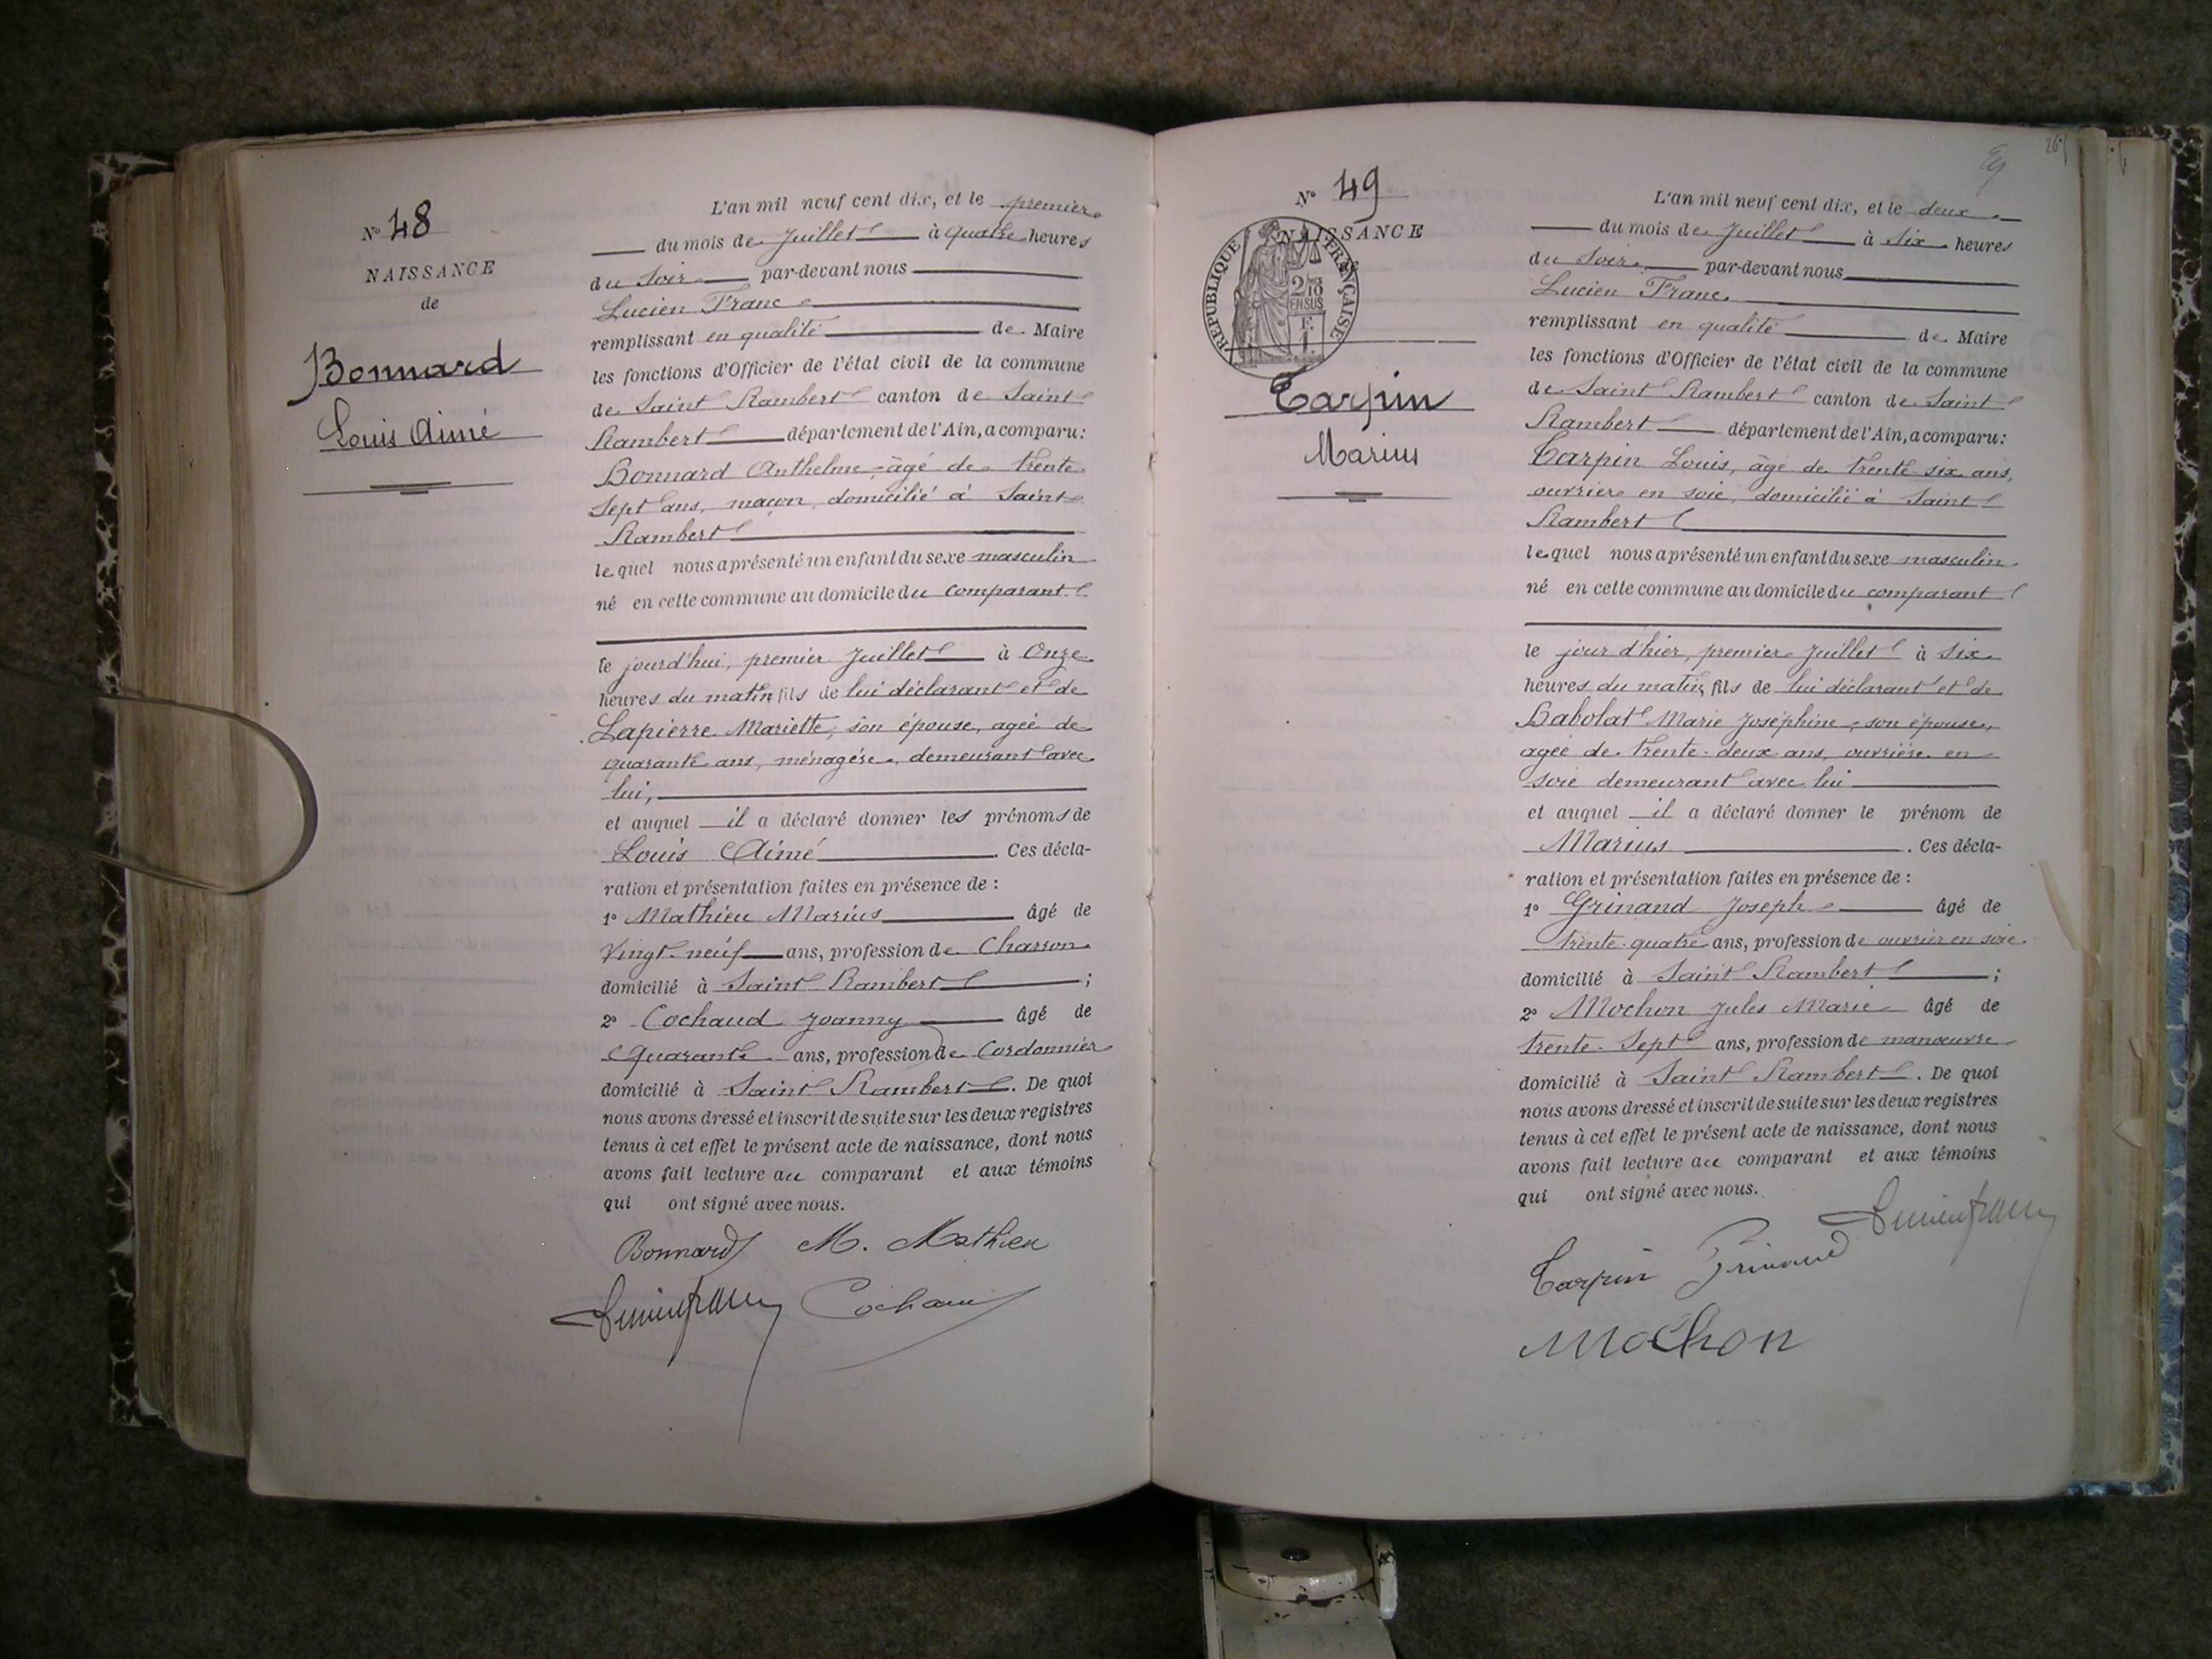 N° 48
NAISSANCE
de
Bonnard
Louis Aimé
L'an mil neuf cent dix, et le premier
du mois de Juillet à quatre heures
du Soir par-devant nous
Lucien Franc
remplissant en qualité de Maire
les fonctions d'Officier de l'état civil de la commune
de Saint Rambert canton de Saint
Rambert département de l'Ain, a comparu:
Bonnard Anthelme âgé de trente
sept ans, maçon, domicilié à Saint
Rambert
lequel nous a présenté un enfant du sexe masculin
né en cette commune au domicile du comparant
le jourd'hui, premier Juillet à Onze
heures du matin fils de lui déclarant et de
Lapierre Mariette, son épouse, agée de
quarante ans, ménagère, demeurant avec
lui,
et auquel il a déclaré donner les prénoms de
Louis Aimé. Ces décla-
ration et présentation faites en présence de :
1° Mathieu Marius âgé de
Vingt-neuf ans, profession de Charron
domicilié à Saint Rambert ;
2° Cochaud Joanny âgé de
Quarante ans, profession de Cordonnier
domicilié à Saint Rambert. De quoi
nous avons dressé et inscrit de suite sur les deux registres
tenus à cet effet le présent acte de naissance, dont nous
avons fait lecture au comparant et aux témoins
qui ont signé avec nous.
Bonnard M. Mathieu
Lucien Franc Cochaud
26
N° 49
NAISSANCE
de
REPUBLIQUE FRANÇAISE
2/10
EN SUS
F.
1.
Carpin
Marius
L'an mil neuf cent dix, et le deux
du mois de Juillet à six heures
du Soir par-devant nous
Lucien Franc
remplissant en qualité de Maire
les fonctions d'Officier de l'état civil de la commune
de Saint Rambert canton de Saint
Rambert département de l'Ain, a comparu:
Carpin Louis, âgé de trente six ans,
ouvrier en soie, domicilié à Saint
Rambert
lequel nous a présenté un enfant du sexe masculin
né en cette commune au domicile du comparant
le jour d'hier, premier Juillet à six
heures du matin, fils de lui déclarant et de
Babolat Marie Joséphine, son épouse,
agée de trente-deux ans, ouvrière en
soie demeurant avec lui
et auquel il a déclaré donner le prénom de
Marius. Ces décla-
ration et présentation faites en présence de :
1° Grinand Joseph âgé de
trente-quatre ans, profession de ouvrier en soie
domicilié à Saint Rambert ;
2° Mochon Jules Marie âgé de
trente-Sept ans, profession de manoeuvre
domicilié à Saint Rambert. De quoi
nous avons dressé et inscrit de suite sur les deux registres
tenus à cet effet le présent acte de naissance, dont nous
avons fait lecture au comparant et aux témoins
qui ont signé avec nous.
Lucien Franc
Carpin Grinand
Mochon